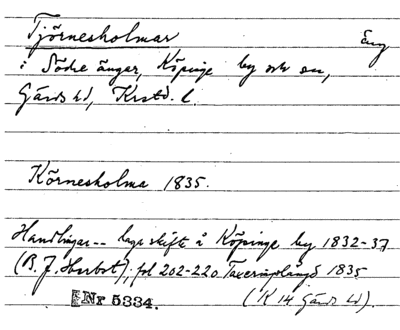 Tjörnesholmar Äng
i Södre ängar, Köpinge by och sn,
Gärds hd, Krstd. l.
Körnesholma 1835.
Handlingar -- laga skift å Köpinge by 1832-37
(B. J. ), fol 202-220 Taxeringslängd 1835
Nr 5334. (K 14 Gärds hd).